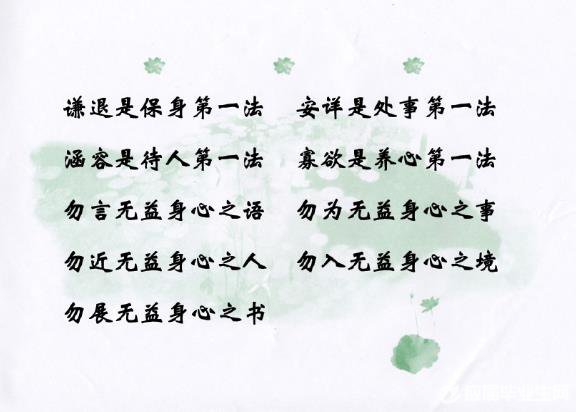 谦退是保身第一法 安详是处事第一法
涵容是待人第一法 寡欲是养心第一法
勿言无益身心之语 勿为无益身心之事
勿近无益身心之人 勿入无益身心之境
勿展无益身心之书
应届毕业生网